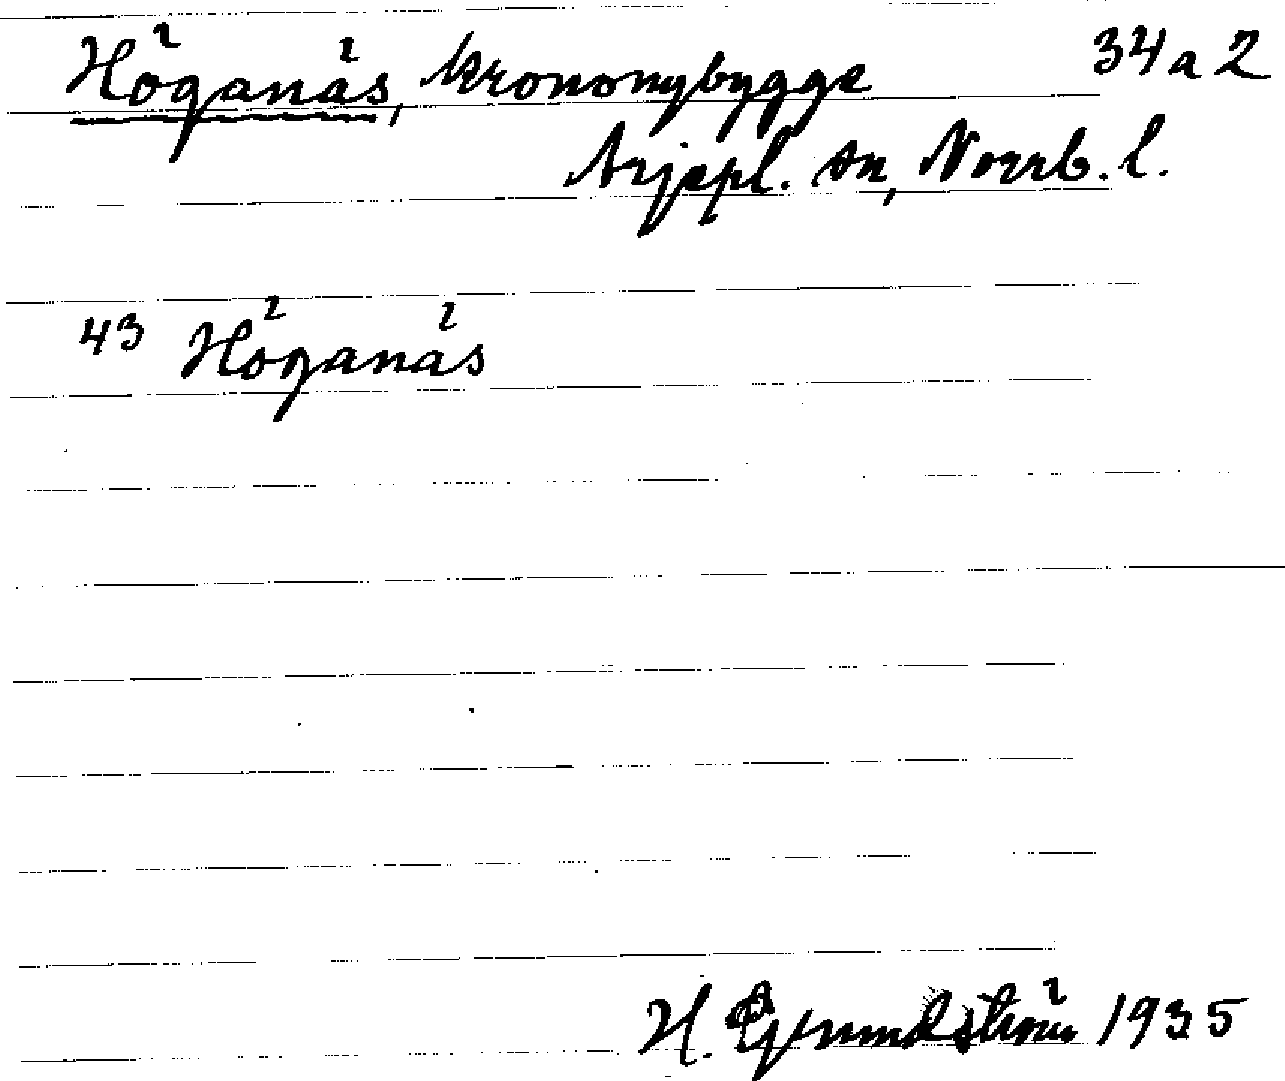 Höganäs, krononybygge 34 a 2
Arjepl. sn, Norrb. l.
43 Höganäs
H. Grundström 1935